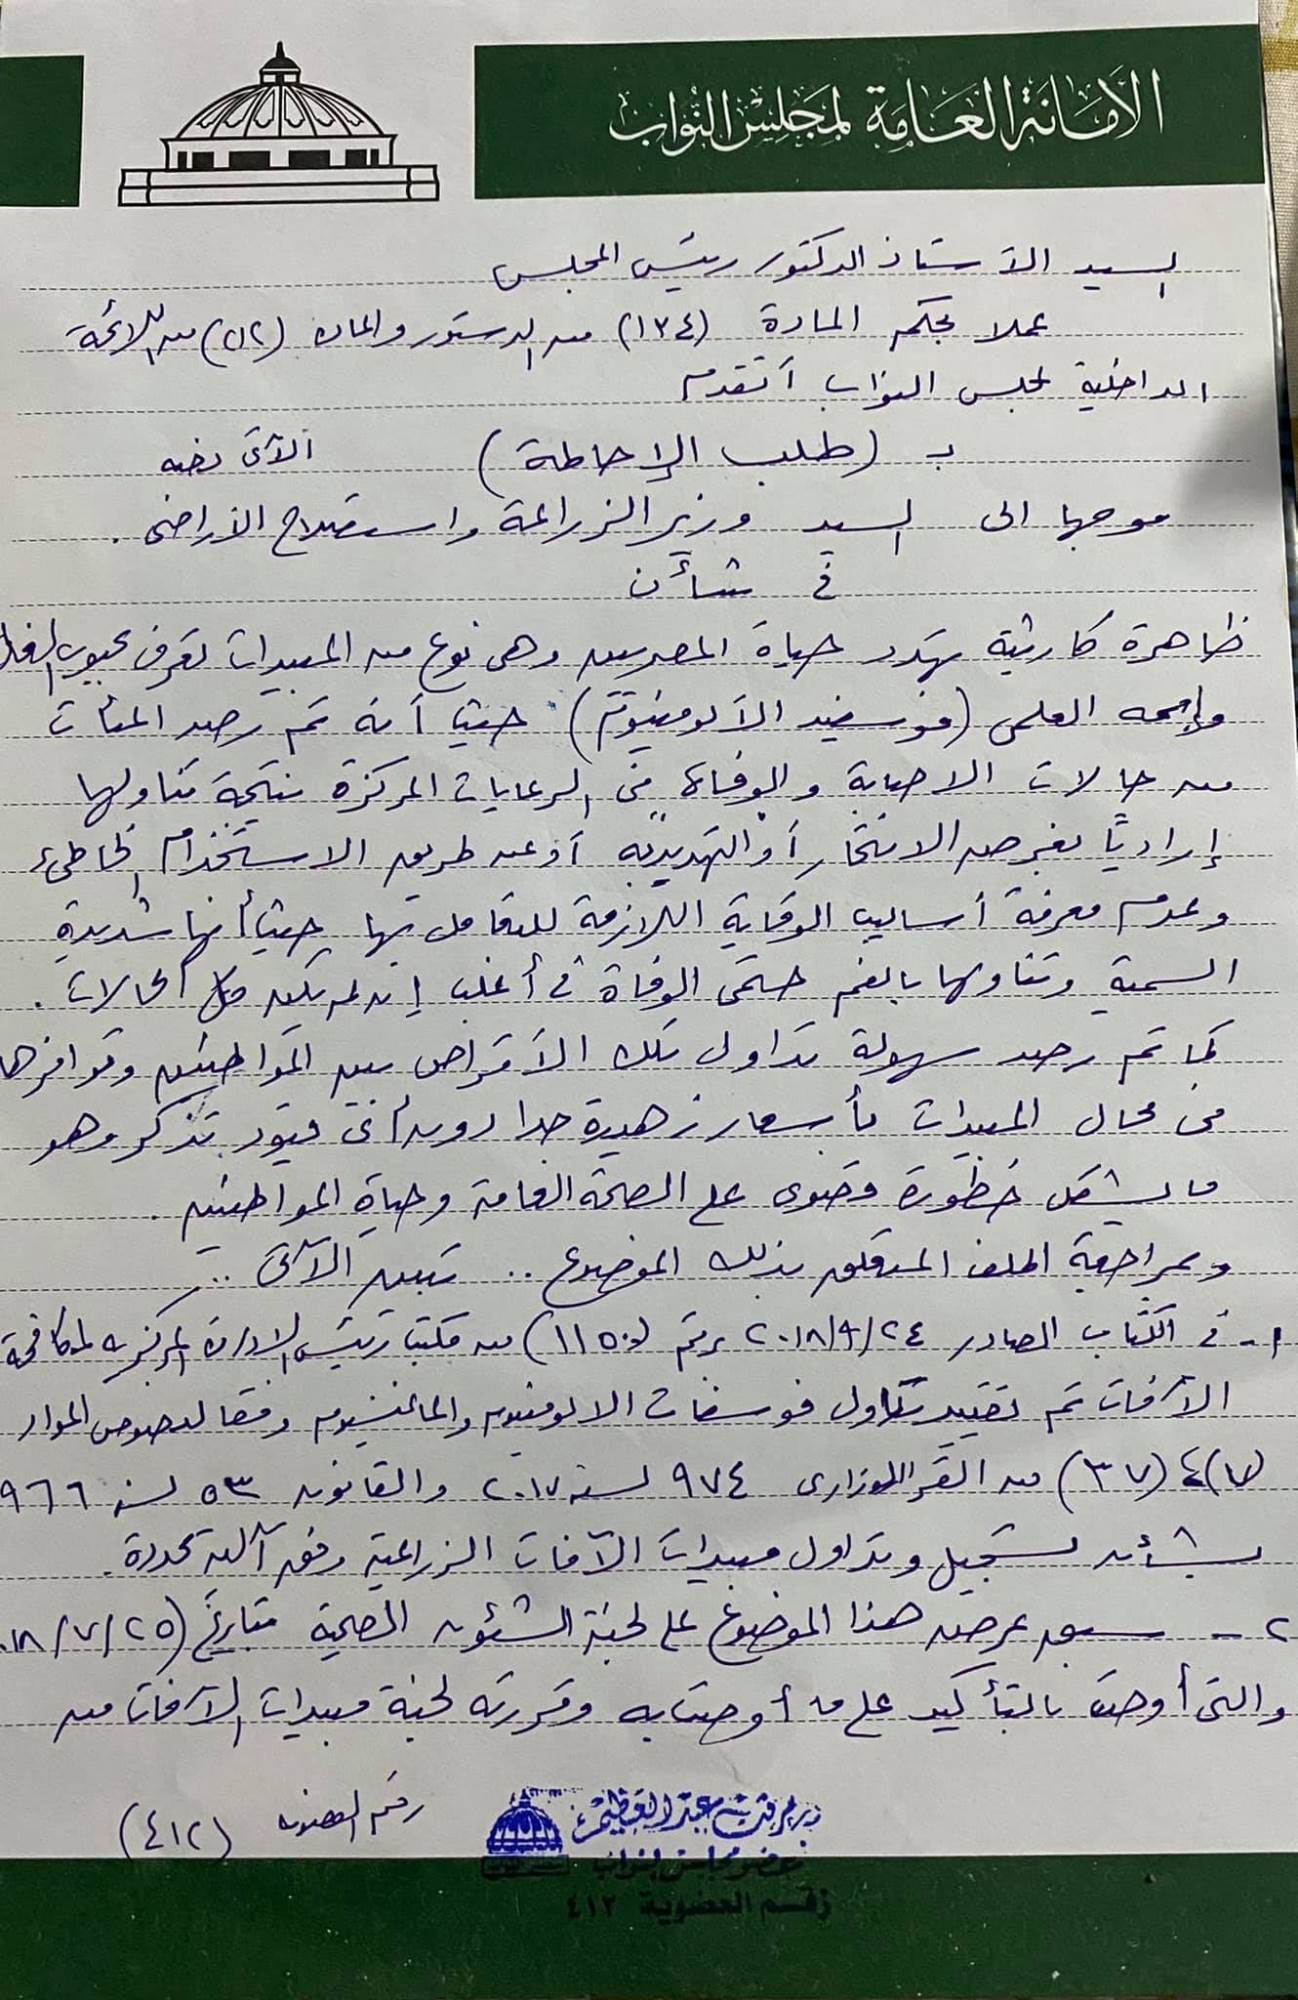 الأمانة العامة لمجلس النواب
السيد الأستاذ الدكتور رئيس المجلس
عملا بحكم المادة (١٣٤) من الدستور والمادة (٢١٢) من اللائحة
الداخلية لمجلس النواب أتقدم
بـ (طلب الإحاطة) الآتى نصه
موجها الى السيد وزير الزراعة واستصلاح الأراضى .
في شأن
ظاهرة كارثية تهدد حياة المصريين وهى نوع من المبيدات تعرف بحبوب الغلال
واسمه العلمى (فوسفيد الألومنيوم) حيث أنه تم رصد المئات
من حالات الاصابة والوفاة فى الرعايات المركزة نتيجة تناولها
إراديًا بغرض الانتحار أو التهديد به أو عن طريق الاستخدام الخاطئ
وعدم معرفة أساليب الوقاية اللازمة للتعامل بها حيث أنها شديدة
السمية وتناولها بالفم حتمى الوفاة فى أغلب إن لم يكن كل الحالات .
كما تم رصد سهولة تداول تلك الأقراص بين المواطنين وتوافرها
فى محال المبيدات بأسعار زهيدة جدا دون أى قيود تذكر وهو
ما يشكل خطورة قصوى على الصحة العامة وحياة المواطنين .
وبمراجعة الملف المتعلق بذلك الموضوع .. تبين الآتى ..
١- فى الكتاب الصادر ٢٠١٨/٩/٢٤ برقم (١١٥٠) من مكتب رئيس الإدارة المركزية لمكافحة
الآفات تم تقييد تداول فوسفات الالومنيوم والماغنسيوم وفقا لنصوص المواد
(٣٧) من القرار الوزارى ٩٧٤ لسنة ٢٠١٧ والقانون ٥٣ لسنة ٩٦٦
بشأن تسجيل وتداول مبيدات الآفات الزراعية وفق آلية محددة .
٢- سبق عرض هذا الموضوع على لجنة الشئون الصحية بتاريخ (٢٥/٧/٠١٨
والتى أوصت بالتأكيد على ما أوصت به وقررته لجنة مبيدات الآفات من
رقم العضوية (٤١٢)
عبد العظيم
عضو مجلس النواب
رقم العضوية ٤١٢